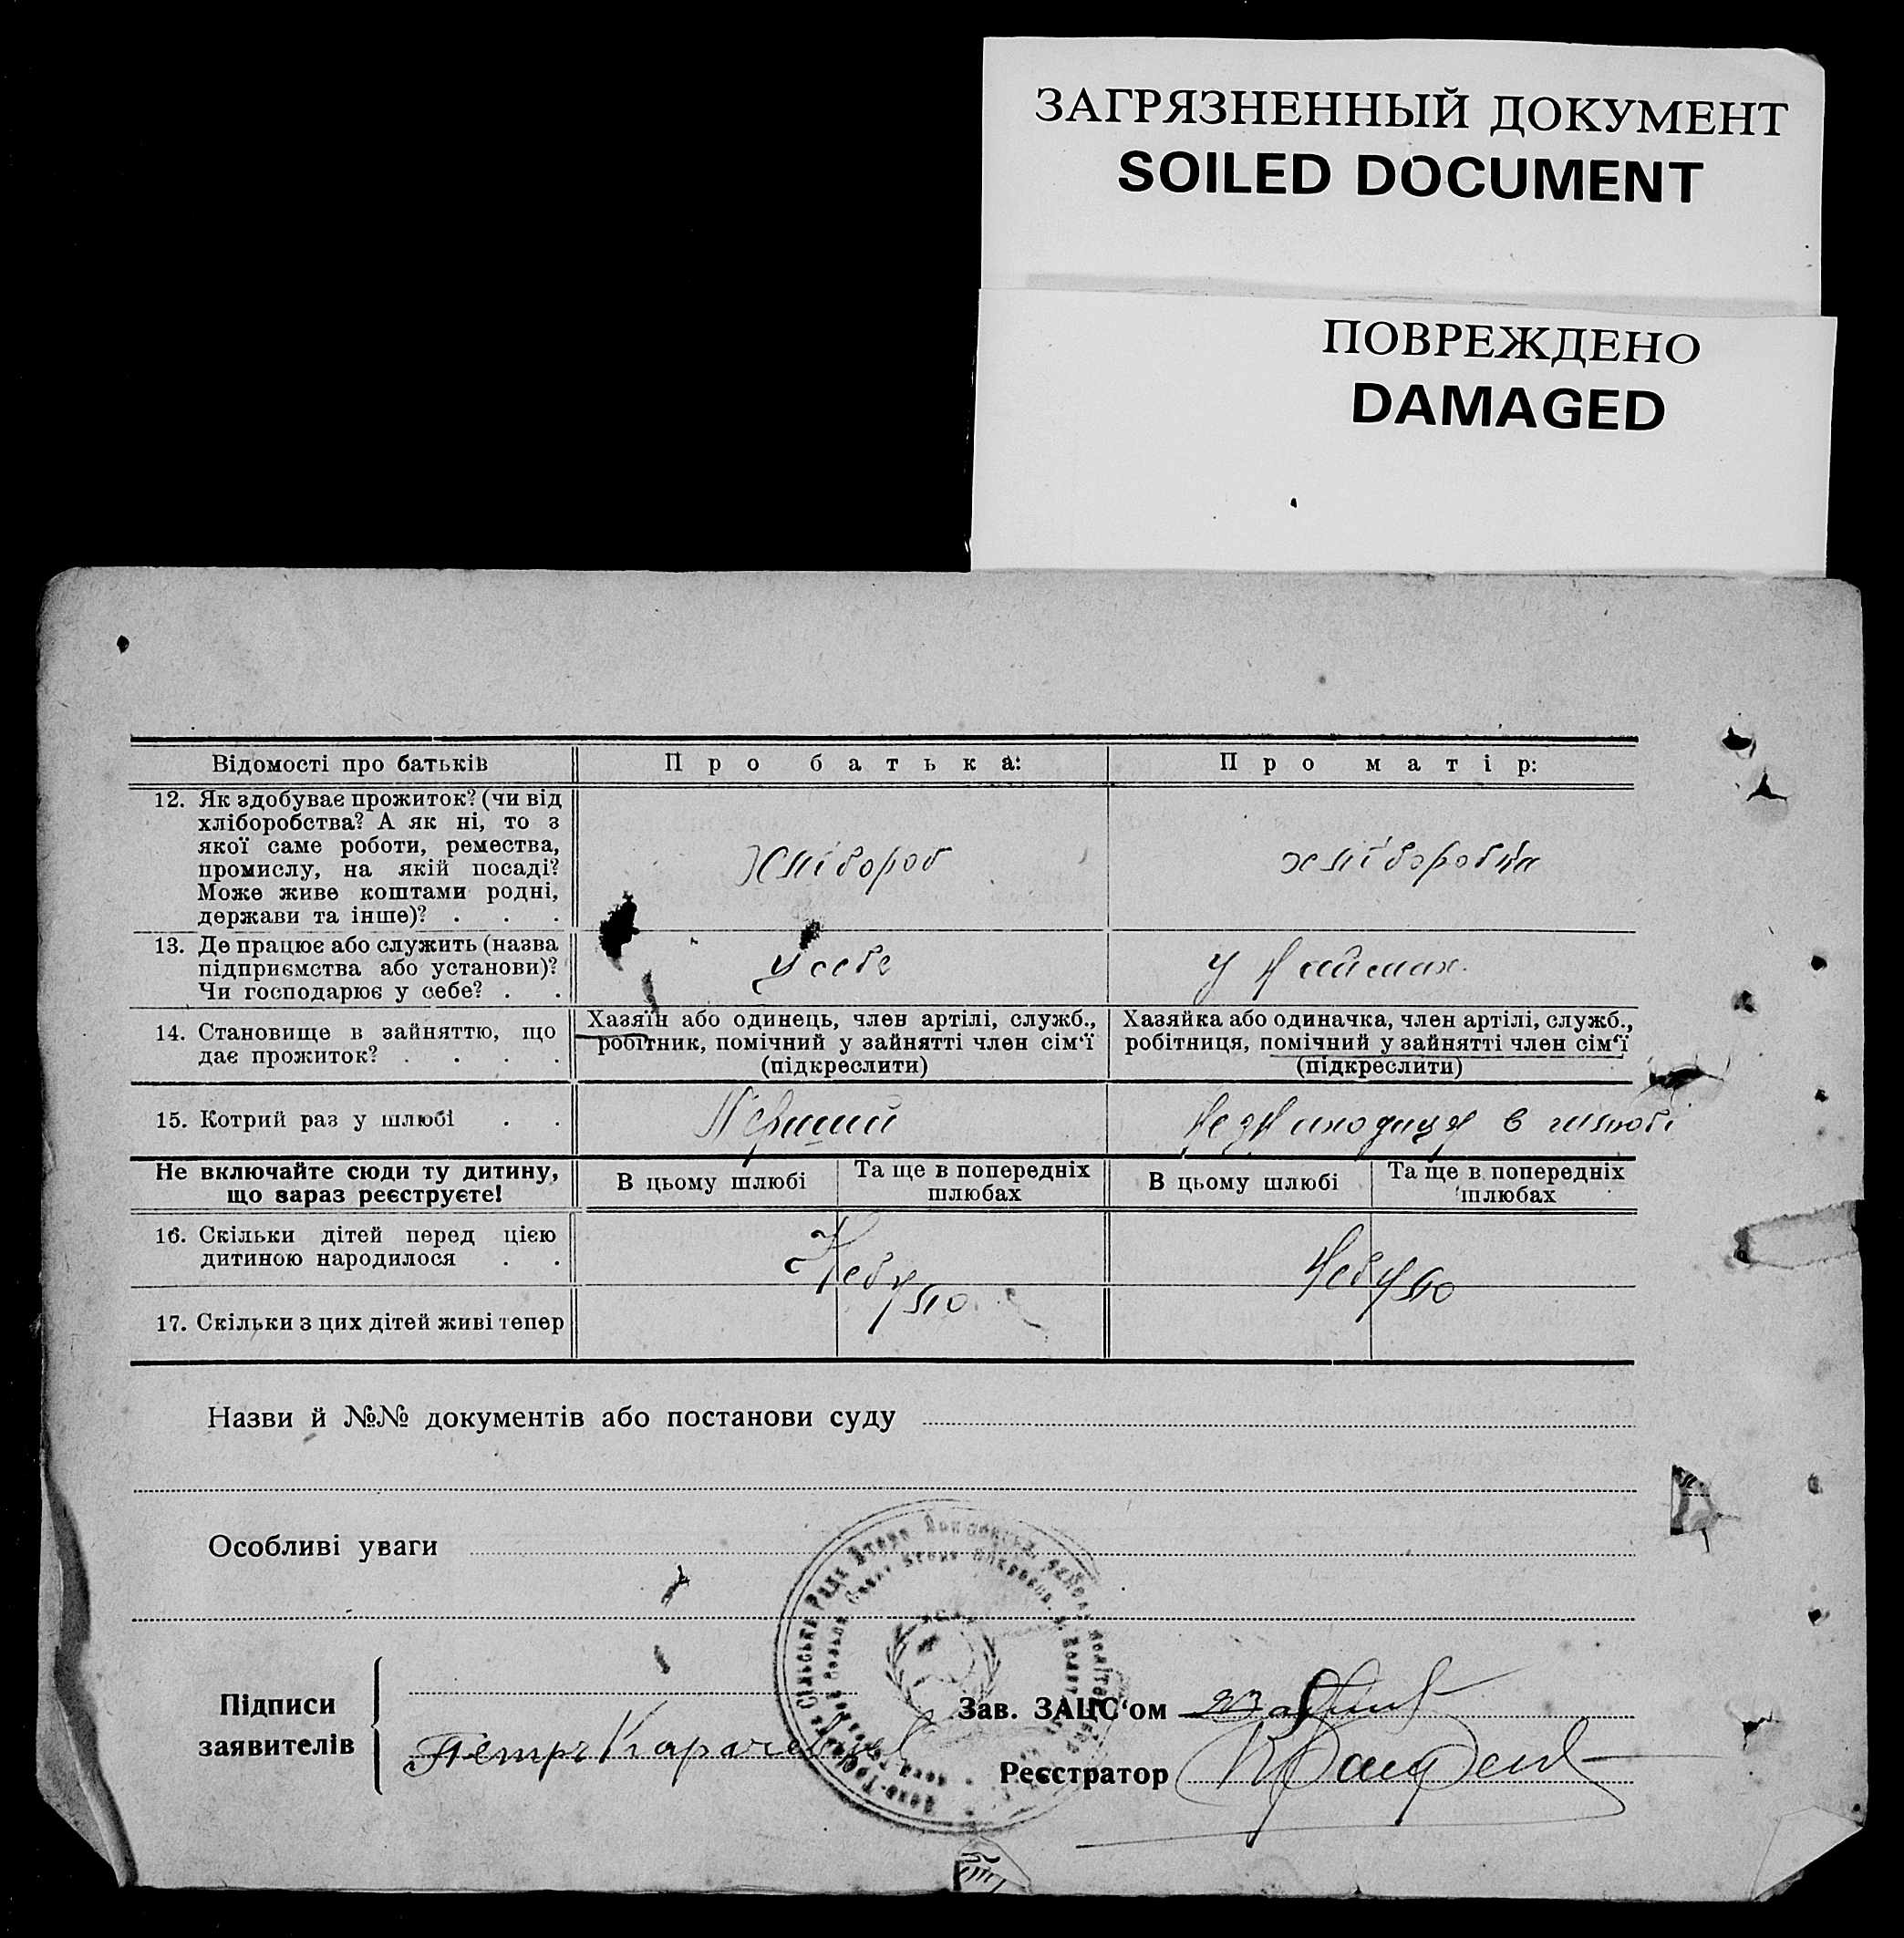 ЗАГРЯЗНЕННЫЙ ДОКУМЕНТ
SOILED DOCUMENT
ПОВРЕЖДЕНО
DAMAGED
Відомості про батьків
Про батька:
Про матір:
12. Як здобуває прожиток? (чи від
хліборобства? А як ні, то з
якої саме роботи, ремества,
промислу, на якій посаді?
Може живе коштами родні,
держави та інше)? . . .
Хлібороб
хліборобка
13. Де працює або служить (назва
підприємства або установи)?
Чи господарює у себе? . .
У себе
У наймах.
14. Становище в зайняттю, що
дає прожиток? . . . .
Хазяїн або одинець, член артілі, служб.,
робітник, помічний у зайнятті член сім‘ї
(підкреслити)
Хазяйка або одиначка, член артілі, служб.,
робітниця, помічний у зайнятті член сім‘ї
(підкреслити)
15. Котрий раз у шлюбі . .
Перший
Незнаходиця в шлюбі
Не включайте сюди ту дитину,
що зараз реєструєте!
В цьому шлюбі
Та ще в попередніх
шлюбах
В цьому шлюбі
Та ще в попередніх
шлюбах
16. Скільки дітей перед цією
дитиною народилося . .
Небуло
Небуло
17. Скільки з цих дітей живі тепер
Назви й №№ документів або постанови суду
Особливі уваги
Сільська Рада
Підписи
заявителів
Петр Карачевцев
Зав. ЗАЦС‘ом
Реєстратор